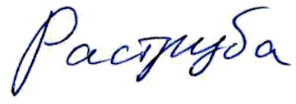 Раструба